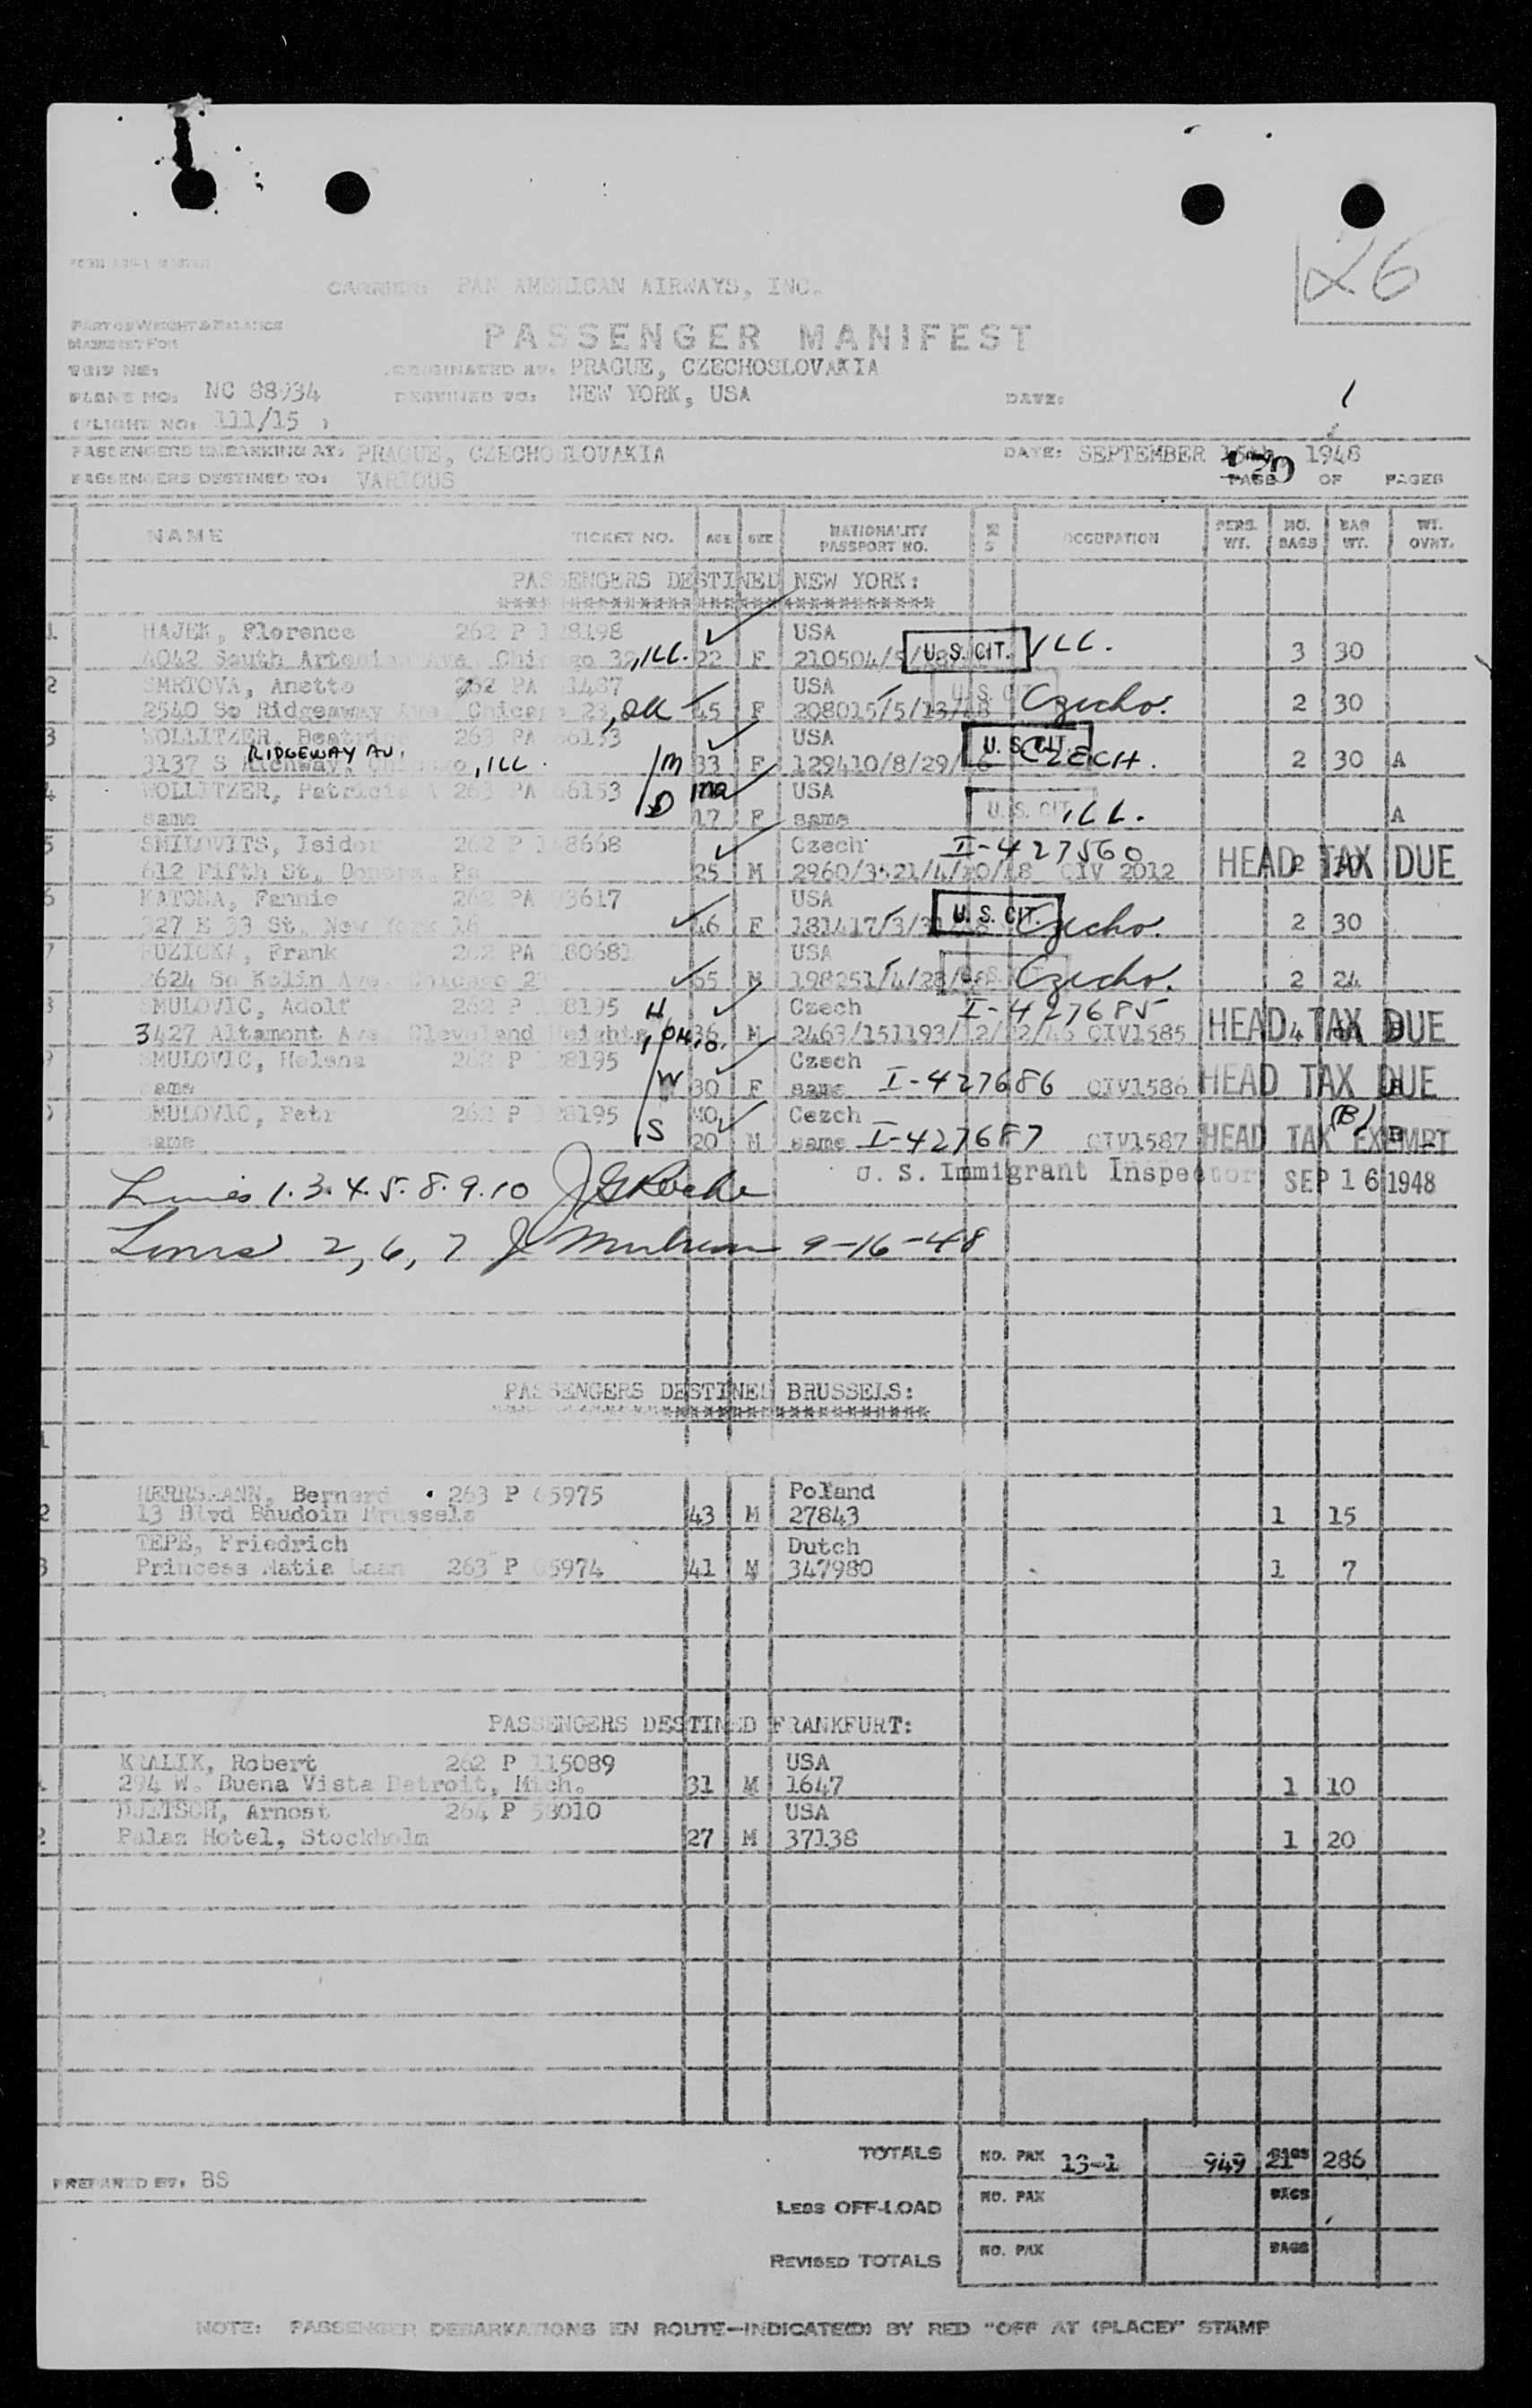 26
CARRIER: PAN AMERICAN AIRWAYS, INC.
PART OF WEIGHT & BALANCE
MANIFEST FOR
PASSENGER MANIFEST
TRIP NO:
ORIGINATED AT: PRAGUE, CZECHOSLOVAKIA
PLANE NO: NC 88934
DESTINED TO: NEW YORK, USA
DATE:
(FLIGHT NO: 111/15 )
PASSENGERS EMBARKING AT: PRAGUE, CZECHOSLOVAKIA
DATE: SEPTEMBER 15th, 1948
PASSENGERS DESTINED TO: VARIOUS
PAGE OF PAGES
NAME TICKET NO. AGE SEX NATIONALITY PASSPORT NO. M S OCCUPATION PERS. WT. NO. BAGS BAG WT. WT. OVNT.
PASSENGERS DESTINED NEW YORK:
1 HAJEK, Florence 262 P 128198 USA
4042 South Artesian Ave Chicago 32, ILL. 22 F 210504/5/ U.S. CIT. ILL. 3 30
2 SMRTOVA, Anette 262 PA 1487 USA U.S. CIT
2540 So Ridgeaway Ave Chicago 23, Ill 45 F 208015/5/13/48 Czecho. 2 30
3 WOLLITZER, Beatrice 263 PA 66153 USA U.S. CIT.
RIDGEWAY AV.
3137 S Richway, Chicago, ILL. M 33 F 129410/8/29/ CZECH. 2 30 A
4 WOLLITZER, Patricia A 263 PA 66153 D USA
same 17 F same U.S. CIT ILL. A
5 SMILOVITS, Isidor 262 P 148668 Czech I-427560
612 Fifth St, Donora, Pa 25 M 2960/3521/4/10/48 QIV 2012 HEAD TAX DUE 2
6 KATONA, Fannie 262 PA 93617 USA
327 E 33 St. New York 16 46 F 181417/3/31/48 U.S. CIT. Czecho. 2 30
7 RUZICKA, Frank 262 PA 180681 USA
2624 So Kolin Ave. Chicago 23 55 M 198251/4/28/48 Czecho. 2 24
8 SMULOVIC, Adolf 262 P 128195 H Czech I-427685
3427 Altamont Ave Cleveland Heights, OHIO. 36 M 2463/151193/ QIV1585 HEAD TAX DUE 4
9 SMULOVIC, Helena 262 P 128195 Czech
same W 30 F same I-427686 QIV1586 HEAD TAX DUE
SMULOVIC, Petr 262 P 128195 Cezch (B)
same S 20 M same I-427687 QIV1587 HEAD TAX EXEMPT B
U. S. Immigrant Inspector SEP 16 1948
Lines 1. 3. 4. 5. 8. 9. 10
Lines 2, 6, 7 9-16-48
PASSENGERS DESTINED BRUSSELS:
1
HERRSMANN, Bernard 263 P 65975 Poland
2 13 Blvd Baudoin Brussels 43 M 27843 1 15
TEPE, Friedrich Dutch
3 Princess Matia Laan 263 P 65974 41 M 347980 1 7
PASSENGERS DESTINED FRANKFURT:
KRALIK, Robert 262 P 115089 USA
294 W. Buena Vista Detroit, Mich. 31 M 1647 1 10
DJETSCH, Arnost 264 P 58010 USA
2 Palaz Hotel, Stockholm 27 M 37138 1 20
TOTALS NO. PAX 13-1 949 BAGS 21 286
PREPARED BY: BS
LESS OFF-LOAD NO. PAX BAGS
REVISED TOTALS NO. PAX BAGS
NOTE: PASSENGER DEBARKATIONS EN ROUTE—INDICATE(D) BY RED "OFF AT (PLACE)" STAMP